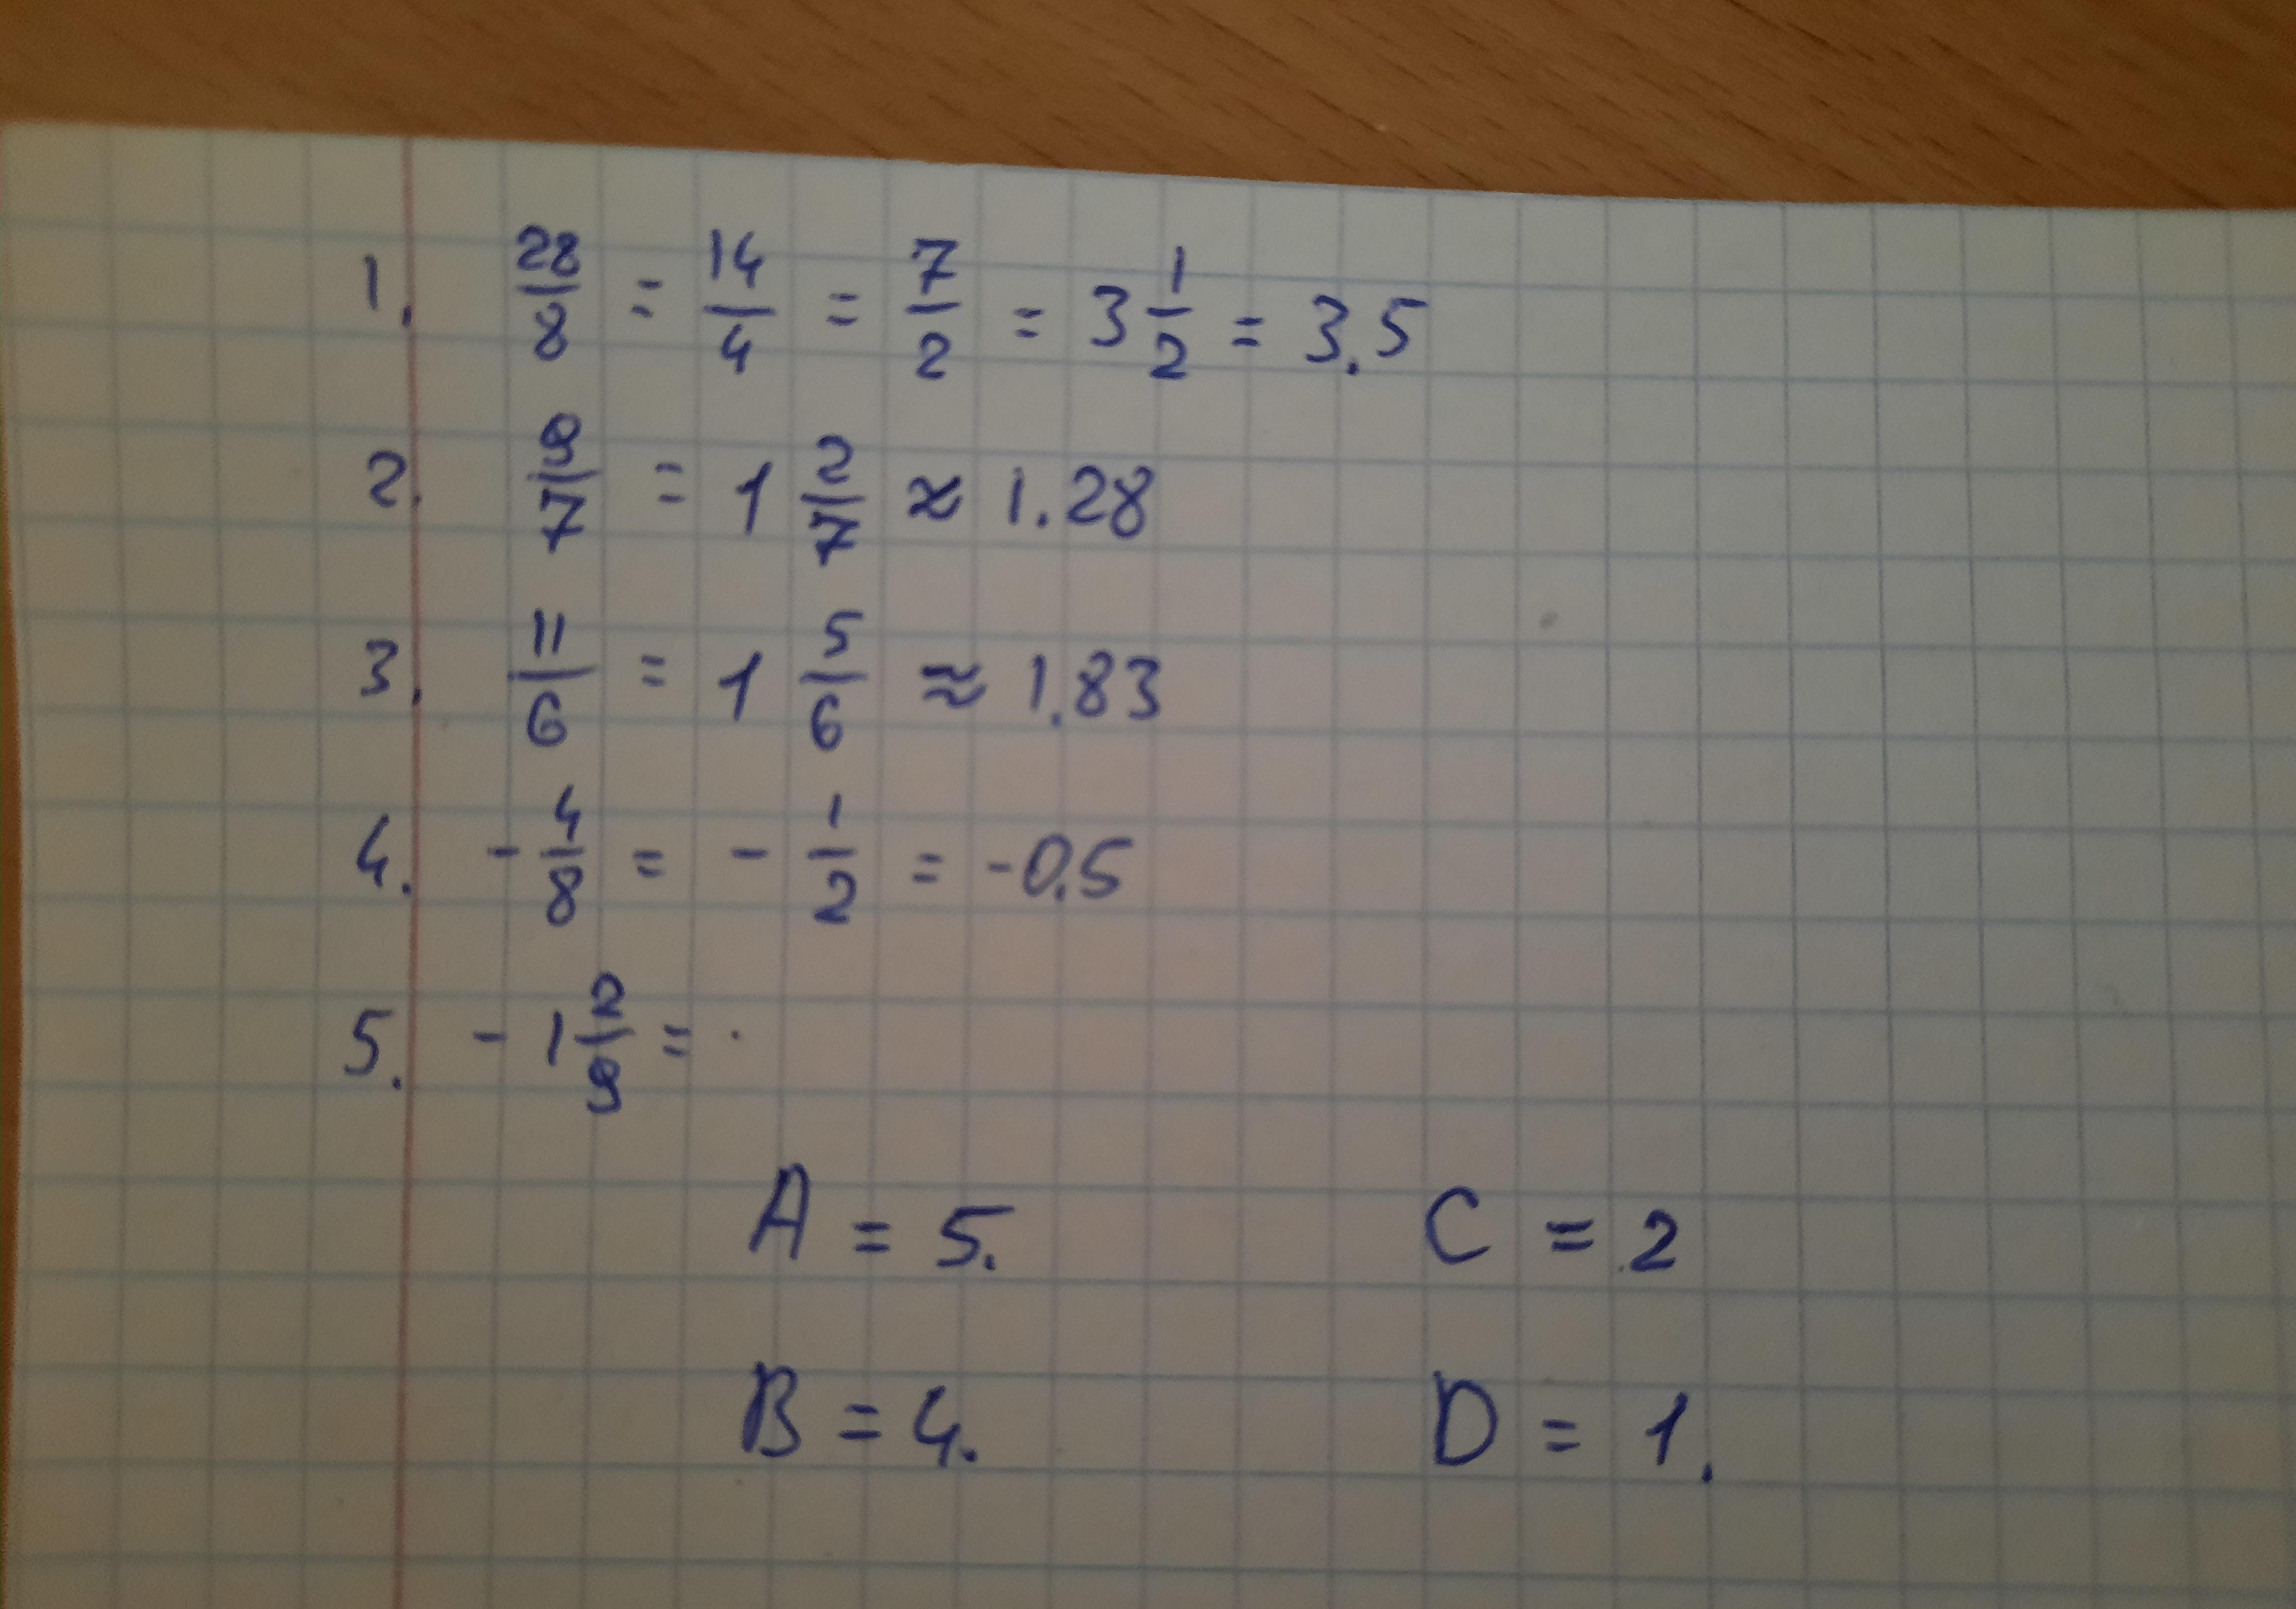 1. 28/8 = 14/4 = 7/2 = 3 1/2 = 3.5
2. 9/7 = 1 2/7 ≈ 1.28
3. 11/6 = 1 5/6 ≈ 1.83
4. - 4/8 = - 1/2 = -0.5
5. - 1 2/9 =
A = 5. C = 2
B = 4. D = 1.